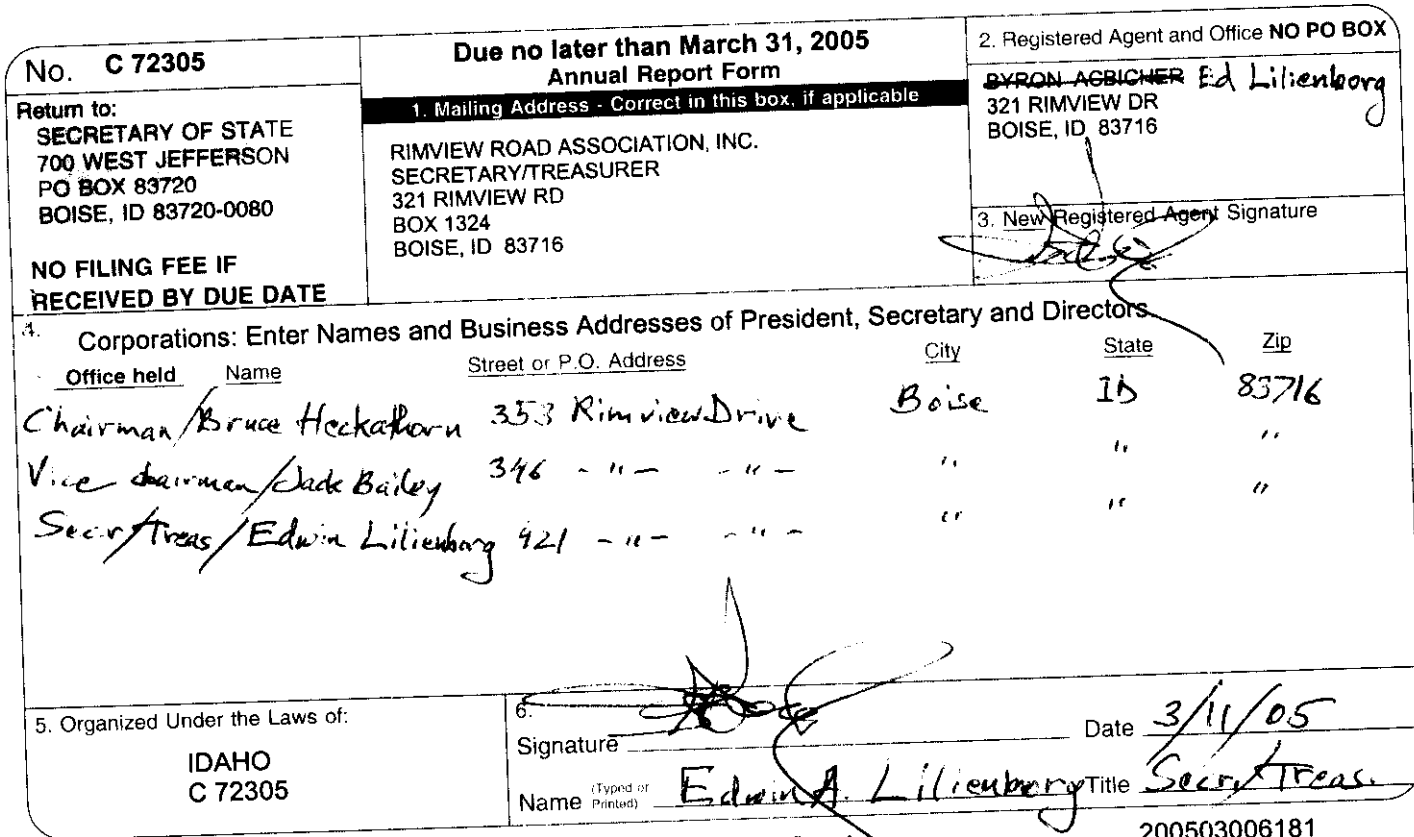 No. C 72305
Return to:
SECRETARY OF STATE
700 WEST JEFFERSON
PO BOX 83720
BOISE, ID 83720-0080
NO FILING FEE IF
RECEIVED BY DUE DATE
Due no later than March 31, 2005
Annual Report Form
1. Mailing Address - Correct in this box, if applicable
RIMVIEW ROAD ASSOCIATION, INC.
SECRETARY/TREASURER
321 RIMVIEW RD
BOX 1324
BOISE, ID 83716
2. Registered Agent and Office NO PO BOX
BYRON AGBICHER Ed Lilienborg
321 RIMVIEW DR
BOISE, ID 83716
3. New Registered Agent Signature
4. Corporations: Enter Names and Business Addresses of President, Secretary and Directors.
Office held Name Street or P.O. Address City State Zip
Chairman/Bruce Heckathorn 353 Rimview Drive Boise ID 83716
Vice chairman/Jack Bailey 346 - " - - " - " " "
Secr/Treas/Edwin Lilienberg 421 - " - - " - " " "
5. Organized Under the Laws of:
IDAHO
C 72305
6.
Signature Date 3/11/05
Name (Typed or Printed) Edwin A. Lilienberg Title Secr/Treas.
200503006181